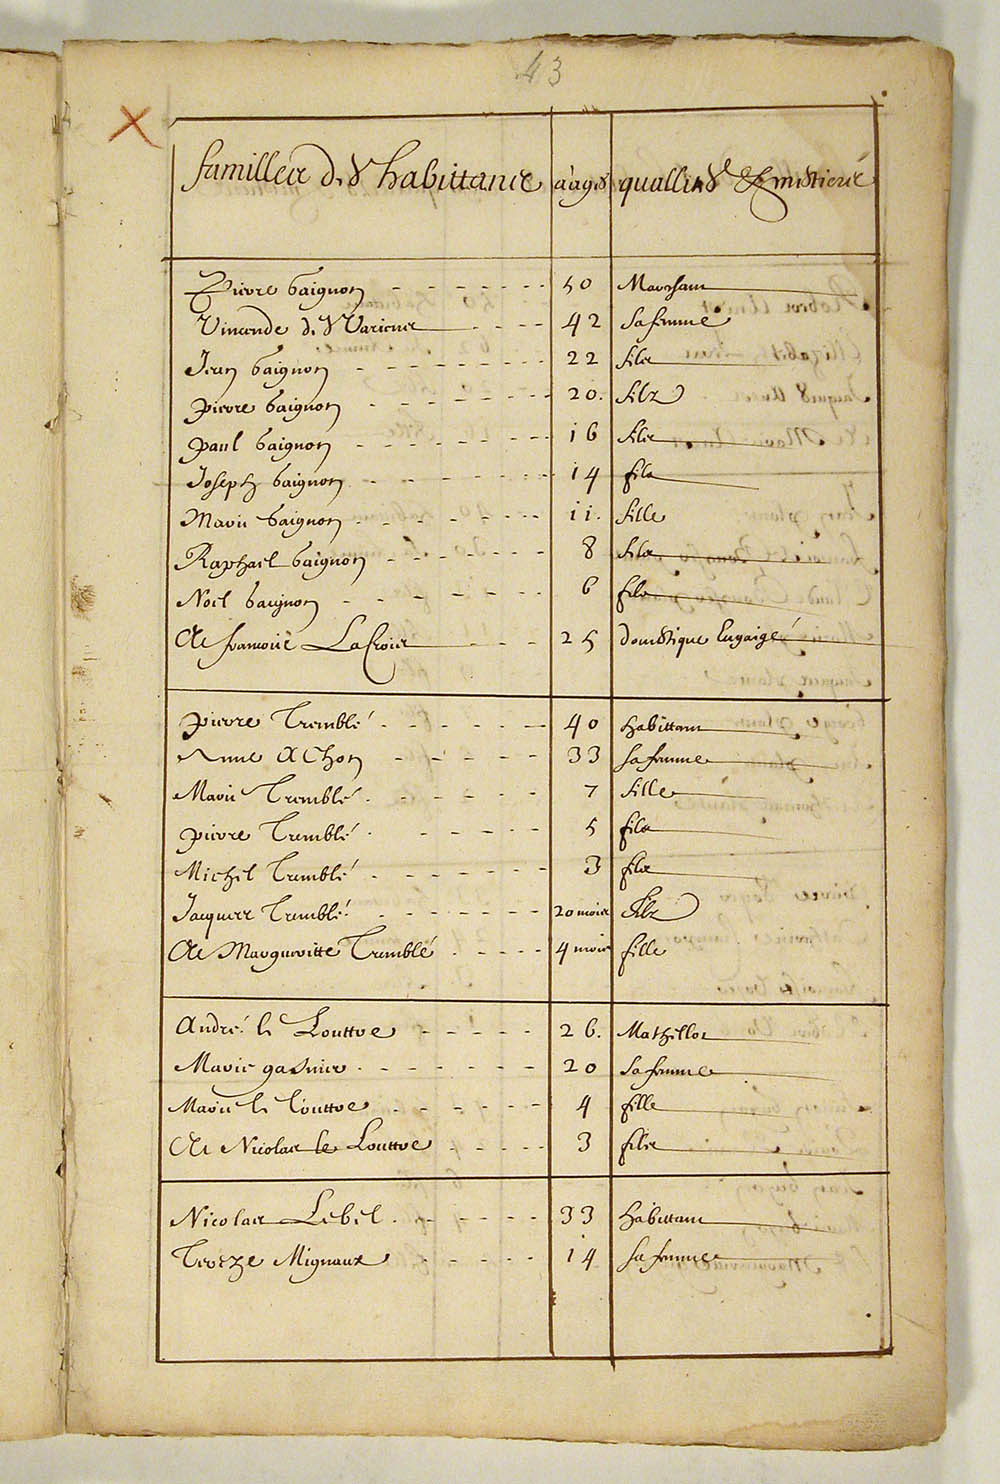 43
familles des habittans aages quallités & mestieres
Pierre Gaignon 50 Maresam
Vincende des Varieux 42 sa femme
Jean Gaignon 22 filz
pierre Gaignon 20. filz
paul Gaignon 16 filz
Joseph Gaignon 14 filz
Marie Gaignon 11. fille
Raphael Gaignon 8 filz
Noel Gaignon 6 filz
Et francois Lacroix 25 domestique Engaigé
pierre Tremblé 40 habittant
Anne AChon 33 sa femme
Marie Tremblé 7 fille
pierre Tremblé 5 filz
Michel Tremblé 3 filz
Jacques Tremblé 20 mois filz
Et Margueritte Tremblé 4 mois fille
André le Louttre 26. Mathellot
Marie gasnier 20 sa femme
Marie le Louttre 4 fille
Et Nicolas le Louttre 3 filz
Nicolas Lebel 33 habittant
Tereze Mignaux 14 sa femme